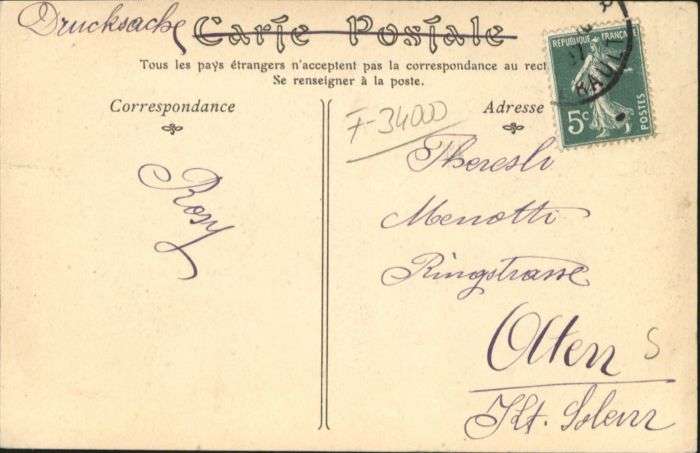 Drucksache
Carte Postale
Tous les pays étrangers n'acceptent pas la correspondance au rect
Se renseigner à la poste.
Correspondance
Adresse
REPUBLIQUE FRANÇAISE
5c
POSTES
F-34000
Rosy
Theresli
Menotti
Ringstrasse
Olten
S
Kt. Soleur